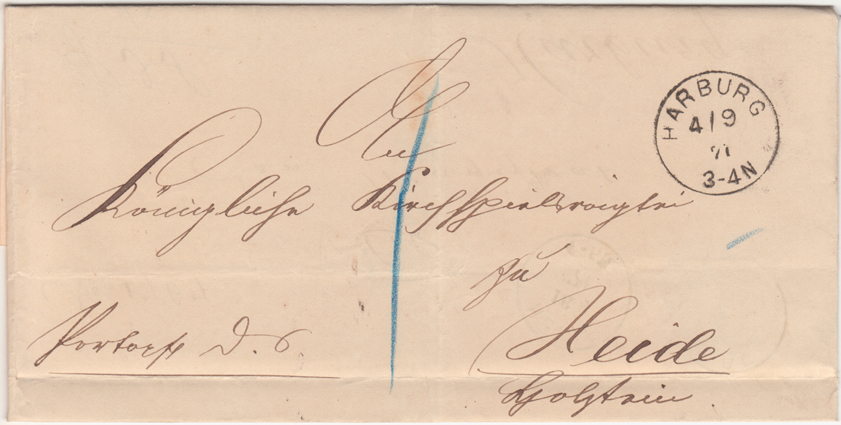 HARBURG
4/9
71
3-4N
An
Königliche Kirchspielsvoigtei
zu
Heide
Holstein.
Portopfl D. S.